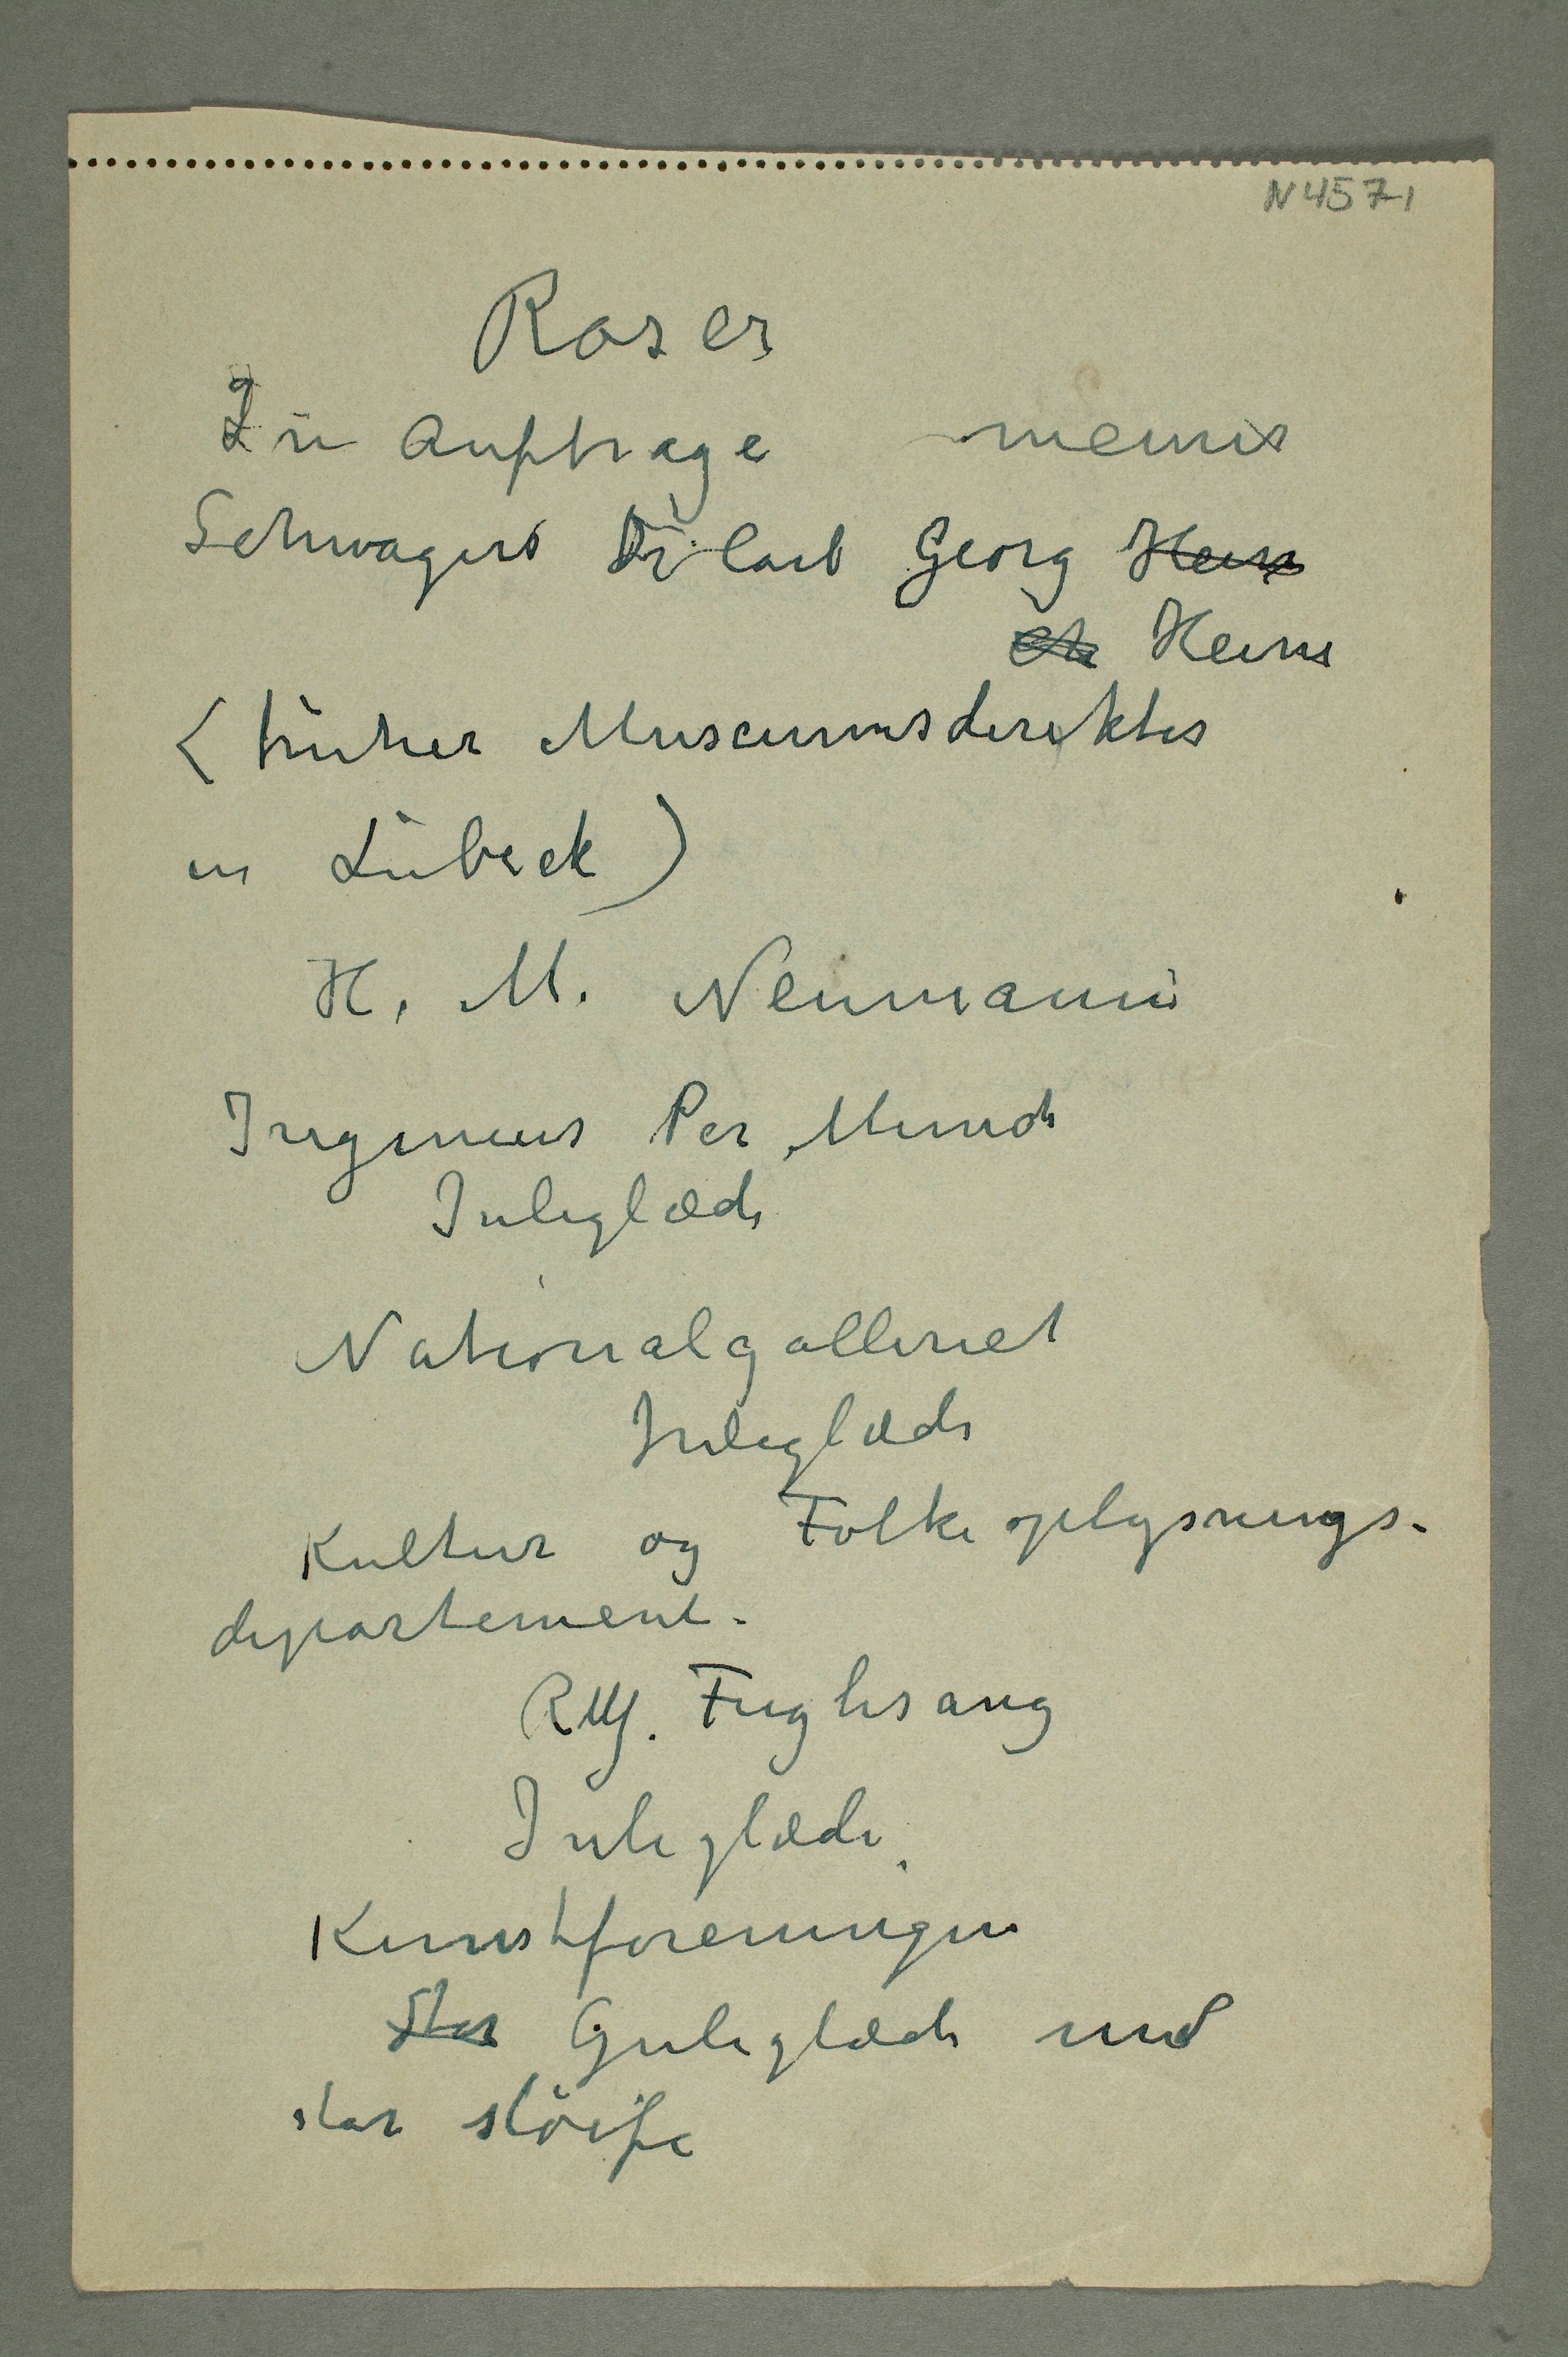 N 4571
Roser
Im Auftrage meines
Schwagers Dr Carl Georg Hein
Heise
(früher Museumsdirektor
in Lübeck)
H. M. Neumann
Ingeniør Per Munch
Juleglæde
Nationalgalleriet
Juleglæde
Kultur og Folkeoplysnings-
departement.
Rolf. Fuglesang
Juleglæde
Kunstforeningen
Stor Juleglæde med
stor slöife